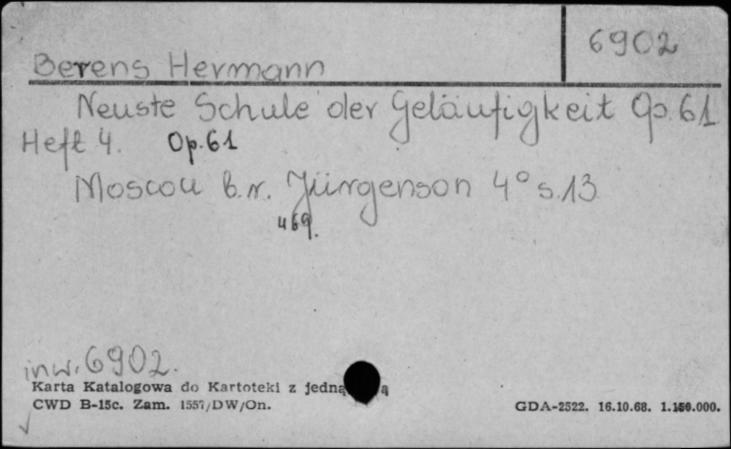 6902
Berens Hermann
Neuste Schule der Geläufigkeit Op. 61
Heft 4. Op. 61
Moscou b.r. Jürgenson 4° s. 13
469.
inw. 6902.
Karta Katalogowa do Kartoteki z jedną
CWD B-15c. Zam. 1557/DW/On.
GDA-2522. 16.10.68. 1.150.000.